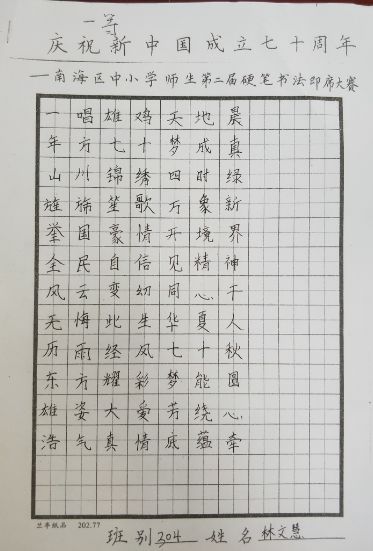 一等
庆祝新中国成立七十周年
—南海区中小学师生第二届硬笔书法即席大赛
一唱雄鸡天地晨
年方七十梦成真
山川锦绣四时绿
旌旆笙歌万象新
举国豪情开境界
全民自信见精神
风云变幻同心干
无悔此生华夏人
历雨经风七十秋
东方耀彩梦能圆
雄姿大爱芳绕心
浩气真情底蕴牵
兰亭纸品 202.77
班别304 姓名林文慧